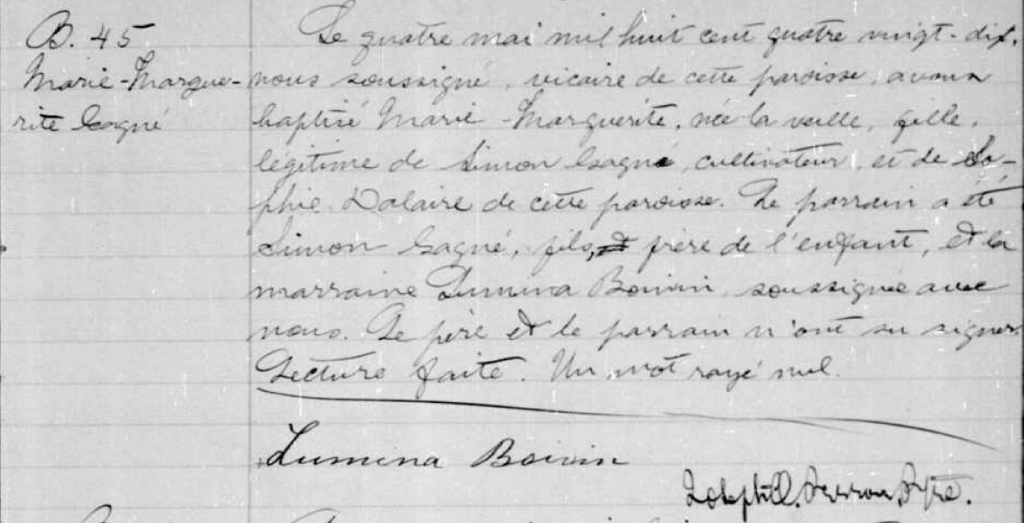 B. 45
Marie-Margue-
rite Gagné
Le quatre mai mil huit cent quatre vingt-dix,
nous soussigné, vicaire de cette paroisse, avons
baptisé Marie-Marguerite, née la veille, fille,
légitime de Simon Gagné, cultivateur, et de So-
phie Dalaire de cette paroisse. Le parrain a été
Simon Gagné, fils, et frère de l'enfant, et la
marraine Lumina Boivin, soussignée avec
nous. Le père et le parrain n'ont su signer.
Lecture faite. Un mot rayé nul.
Lumina Boivin
Ptre.